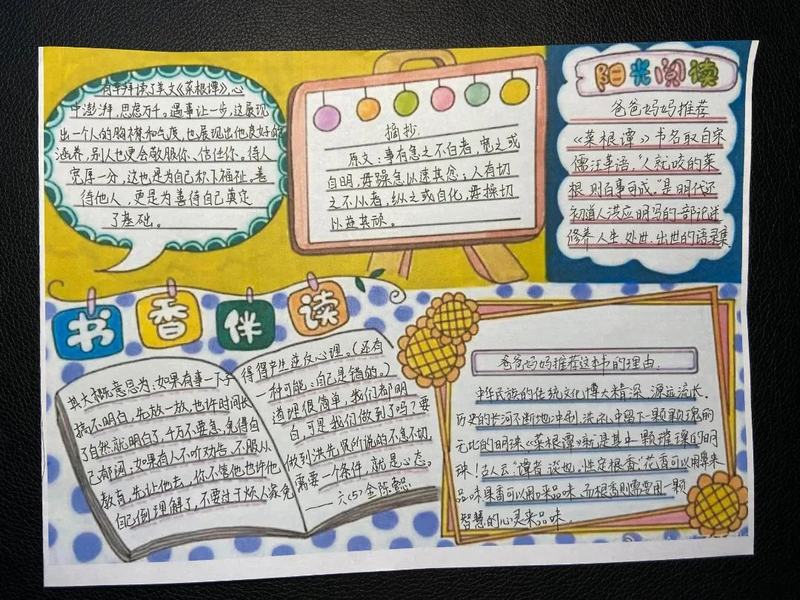 有幸拜读了美文《菜根谭》,心
中澎湃,思虑万千。遇事让一步,这展现
出一个人的胸襟和气度,也展现出他良好的
涵养,别人也更会敬服你、信任你。待人
宽厚一分,这也是为自己积下福祉,善
待他人,更是为善待自己奠定
了基础。
摘抄:
原文:事有急之不白者,宽之或
自明,毋躁急以速其忿;人有切
之不从者,纵之或自化,毋操切
以益其顽。
阳光阅读
爸爸妈妈推荐
《菜根谭》书名取自宋
儒汪革语:"人就咬的菜
根,则百事可成。"是明代还
初道人洪应明写的一部论述
修养人生、处世、出世的语录集
书香伴读
其大概意思为:如果有事一下子
搞不明白,先放一放,也许时间长
了自然就明白了,千万不要急,免得自
己郁闷,如果有人不听劝告,不服从
教育,先让他去,你不管他,也许他
自己倒理解了,不要过于烦人家免
得得产生逆反心理。(还有
一种可能:自己是错的。)
道理很简单,我们都明
白,可是我们做到了吗?要
做到洪先生所说的不急不切,
需要一个条件,就是心态。
——六(5)金陈
爸爸妈妈推荐这本书的理由
中华民族的传统文化博大精深,源远流长,
历史的长河不断地冲刷、洗礼中留下一颗颗瑰丽
无比的明珠《菜根谭》就是其中一颗璀璨的明
珠!古人云"谭者,谈也,性定根香"花香可以用鼻来
品味果香可以用口来品味,而根香则需要用一颗
智慧的心灵来品味。